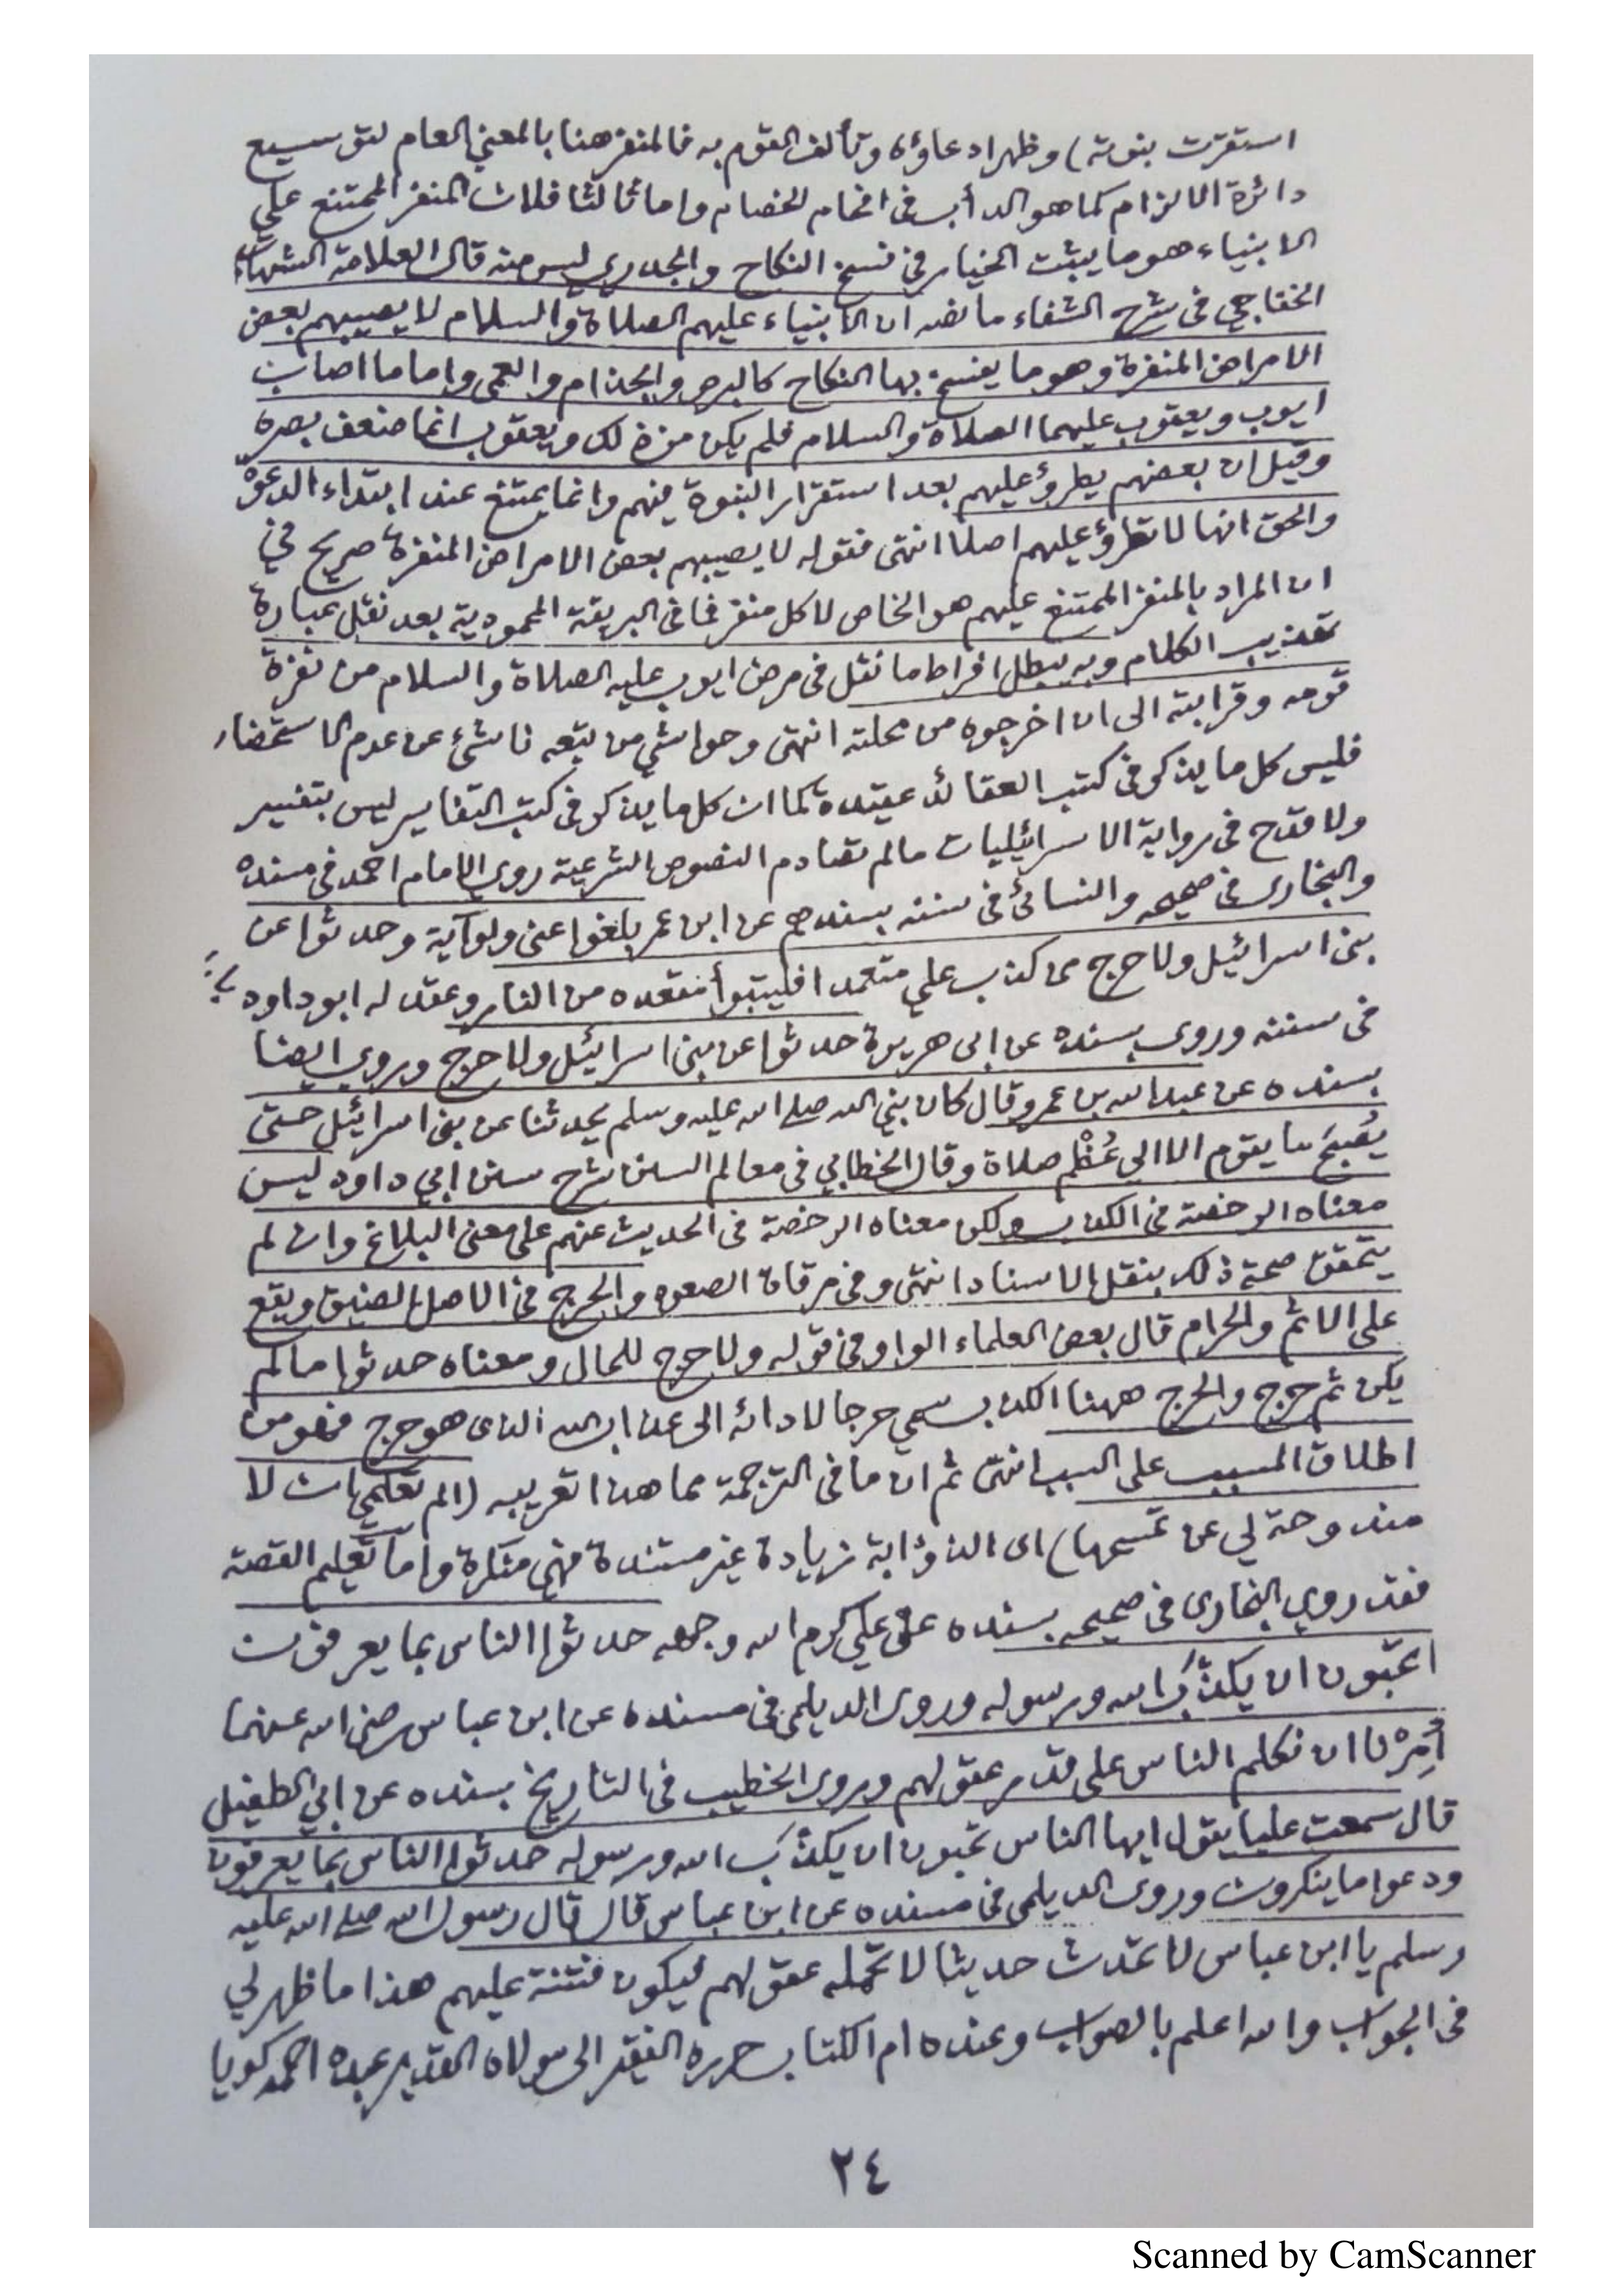 استقرت بنوته) وظهرادعاؤه وتألف القوم به فالمنفر هنا بالمعنى العام لتوسيع
دائرة الالزام كما هو الدأب فى افحام الخصام واما ثالثا فلان المنفر الممتنع على
الانبياء هو ما يثبت الخيار في فسخ النكاح والجدري ليس منه قال العلامة الشهاب
الخفاجي فى شرح الشفاء ما نصه ان الانبياء عليهم الصلاة والسلام لا يصيبهم بعض
الامراض المنفرة وهو ما يفسخ بها النكاح كالبرص والجذام والعمى واما ما اصاب
ايوب ويعقوب عليهما الصلاة والسلام فلم يكن من ذلك ويعقوب انما ضعف بصره
وقيل ان بعضهم يطرؤ عليهم بعد استقرار النبوة فيهم وانما يمتنع عند ابتداء الدعوة
والحق انها لا تطرؤ عليهم اصلا انتهى فقوله لا يصيبهم بعض الامراض المنفرة صريح في
ان المراد بالمنفر الممتنع عليهم هو الخاص لا كل منفر فما فى البريقة المحمودية بعد نقل عبارة
تهذيب الكلام وبه يبطل افراط ما نقل فى مرض ايوب عليه الصلاة والسلام من نفرة
قومه وقرابته الى ان اخرجوه من محلته انتهى وحواشي من تبعه ناشئ عن عدم الاستحضار
فليس كل ما يذكر فى كتب العقائد عقيدة كما ان كل ما يذكر فى كتب التفاسير ليس بتفسير
ولا قدح فى رواية الاسرائيليات مالم تصادم النصوص الشرعية روى الامام احمد فى مسنده
والبخارى فى صحيحه والنسائى فى سننه بسندهم عن ابن عمر بلغوا عنى ولو آية وحدثوا عن
بنى اسرائيل ولا حرج من كذب علي متعمدا فليتبوأ مقعده من النار وعقد له ابو داود باب
فى سننه وروى بسنده عن ابى هريرة حدثوا عن بنى اسرائيل ولا حرج وروي ايضا
بسنده عن عبد الله بن عمرو قال كان نبي الله صلى الله عليه وسلم يحدثنا عن بنى اسرائيل حتى
يُصْبِحَ ما يقوم الا الى عُظْم صلاة وقال الخطابي فى معالم السنن شرح سنن ابي داود ليس
معناه الرخصة فى الكذب ولكن معناه الرخصة فى الحديث عنهم على معنى البلاغ وان لم
يتحقق صحة ذلك بنقل الاسناد انتهى وفى مرقاة الصعود والحرج فى الاصل الضيق ويقع
على الاثم والحرام قال بعض العلماء الواو فى قوله ولا حرج للحال ومعناه حدثوا مالم
يكن ثم حرج والحرج ههنا الكذب سمي حرجا لادائه الى عذاب الله الذى هو حرج فهو من
اطلاق المسبب على السبب انتهى ثم ان ما فى الترجمة مما هذا تعريبه (الم تعلمي ان لا
مندوحة لي عن تمسيحها) اى الذؤابة زيادة غير مستندة فهى منكرة واما تعليم القصة
فقد روي البخارى فى صحيحه بسنده عن علي كرم الله وجهه حدثوا الناس بما يعرفون
اتحبّون ان يكذّبَ الله ورسوله وروى الديلمى فى مسنده عن ابن عباس رضى الله عنهما
أُمِرْنا ان نكلم الناس على قدر عقولهم وروى الخطيب فى التاريخ بسنده عن ابي الطفيل
قال سمعت عليا يقول ايها الناس تحبون ان يكذّبَ الله ورسوله حدثوا الناس بما يعرفون
ودعوا ما ينكرون وروى الديلمى فى مسنده عن ابن عباس قال قال رسول الله صلى الله عليه
وسلم يا ابن عباس لا تحدث حديثا لا تحمله عقولهم فيكون فتنة عليهم هذا ما ظهر لي
فى الجواب والله اعلم بالصواب وعنده ام الكتاب حرره الفقير الى مولاه القدير عبده احمد كويا
٢٤
Scanned by CamScanner